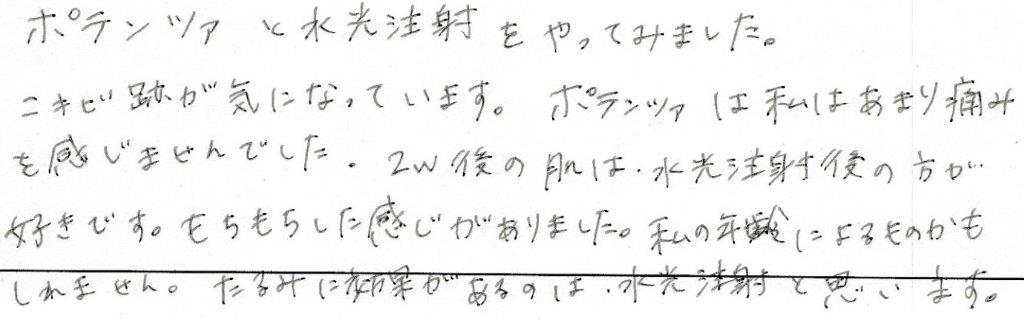 ポテンツァと水光注射をやってみました。
ニキビ跡が気になっています。ポテンツァは私はあまり痛み
を感じませんでした。2w後の肌は、水光注射後の方が
好きです。もちもちした感じがありました。私の年齢によるものかも
しれません。たるみに効果があるのは、水光注射と思います。